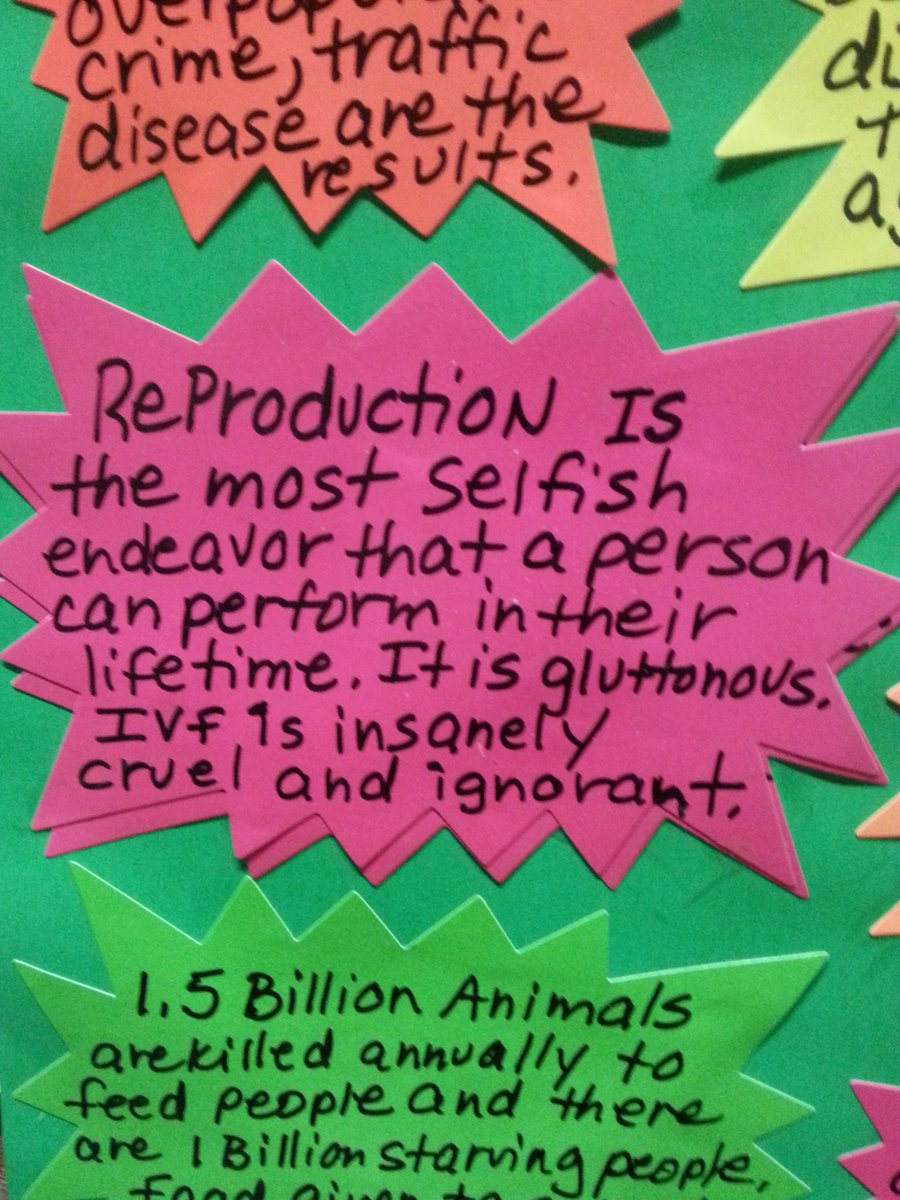 crime, traffic
disease are the
results.
di
ReProductioN Is
the most selfish
endeavor that a person
can perform in their
lifetime. It is gluttonous.
IVf Is insanely
cruel and ignorant.
1.5 Billion Animals
are killed annually to
feed people and there
are 1 Billion starving people.